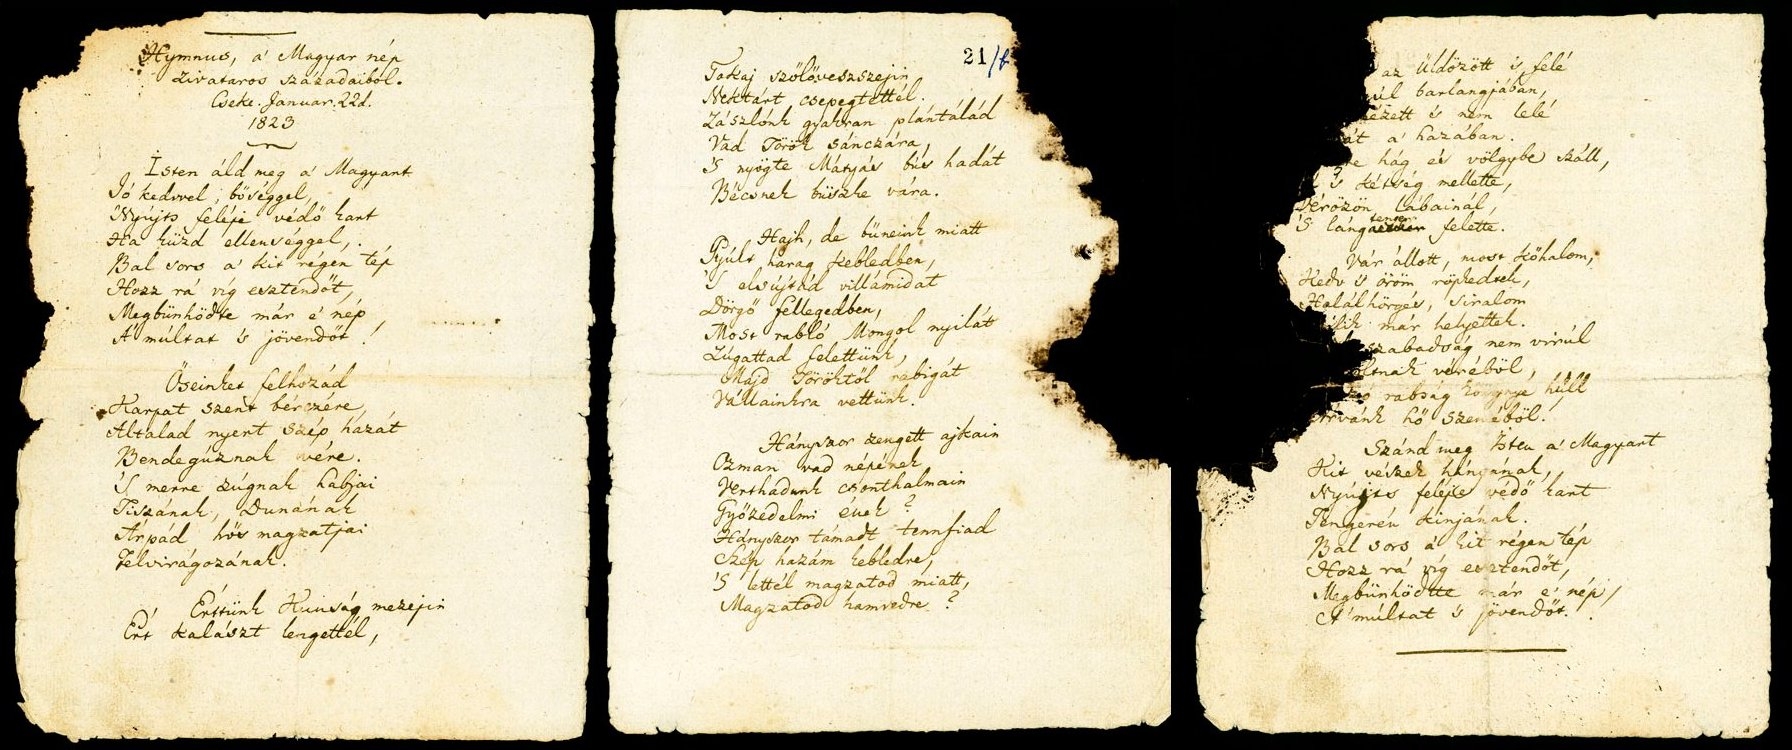 Hymnus, a' Magyar nép
zivataros századaiból.
Cseke. Januar. 22d.
1823
Isten áld meg a' Magyart
Jó kedvvel, bőséggel,
Nyújts feléje védő kart
Ha küzd ellenséggel,
Bal sors a' kit régen tép
Hozz rá víg esztendőt,
Megbünhödte már e' nép
A' múltat 's jövendőt!
Őseinket felhozád
Karpat szent bérczére,
Általad nyert szép hazát
Bendegúznak vére.
'S merre zúgnak habjai
Tiszának, Dunának
Árpád hős magzatjai
Felvirágozának.
Értünk Kunság mezejin
Ért kalászt lengettél,
21/b
Tokaj szőlővesszejin
Nektárt csepegtettél.
Zászlónk gyakran plántálád
Vad Török sánczára,
'S nyögte Mátyás bús hadát
Bécsnek büszke vára.
Hajh, de büneink miatt
Gyúlt harag kebledben,
'S elsújtád villámidat
Dörgő fellegedben,
Most rabló Mongol nyilát
Zúgattad felettünk,
Majd Töröktől rabigát
Vállainkra vettünk.
Hányszor zengett ajkain
Ozman vad népének
Vert hadunk csonthalmain
Győzedelmi ének?
Hányszor támadt tennfiad
Szép hazám kebledre,
'S lettél magzatod miatt,
Magzatod hamvedre?
az Üldözött 's felé
barlangjában,
nézett és nem lelé
a' hazában.
hág és völgybe száll,
's kétség mellette,
Vérözön lábainál,
'S lángtenger felette.
Vár állott, most kőhalom,
Kedv 's öröm röpkedtek,
Halálhörgés, siralom
már helyettek.
szabadság nem virúl
véréből,
rabság könnye hull
hő szeméből.
Szánd meg Isten a' Magyart
Kit vészek hányanak,
Nyújts feléje védő kart
Tengerén kínjának.
Bal sors a' kit régen tép
Hozz rá víg esztendőt,
Megbünhödte már e' nép
A' múltat 's jövendőt.